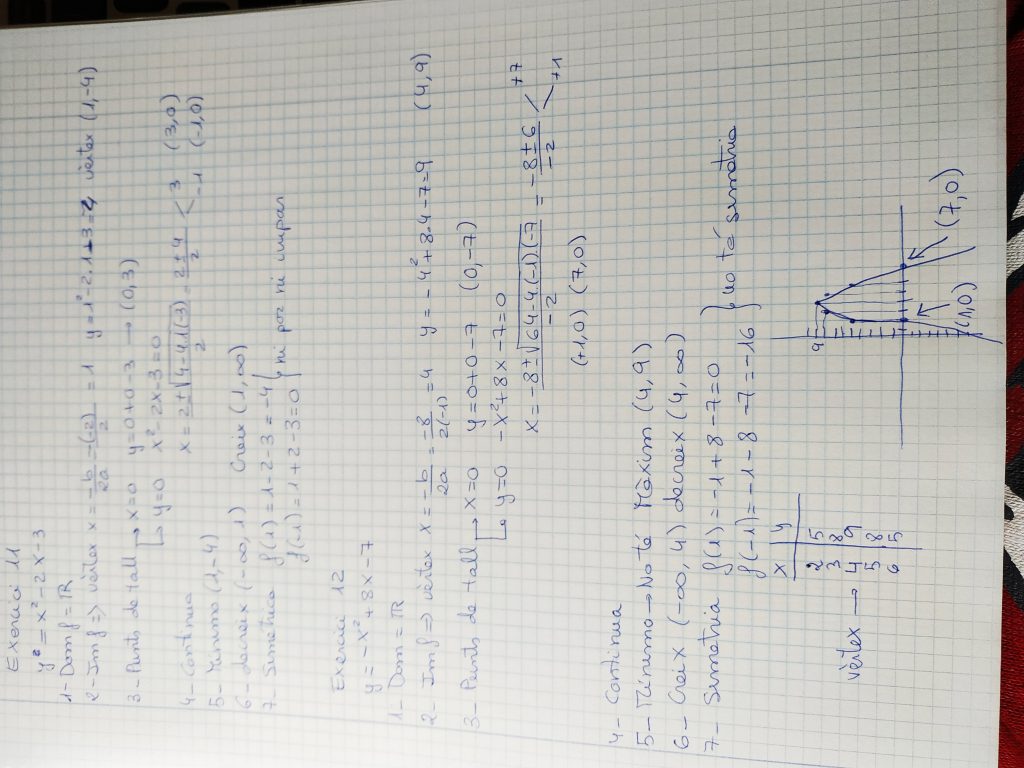 Exercici 11
y = x² - 2x - 3
1- Dom f = ℝ
2- Im f => vèrtex x = -b/2a = -(-2)/2 = 1 y = 1² - 2·1 - 3 = -4 vèrtex (1, -4)
3- Punts de tall → x=0 y = 0+0-3 → (0,3)
↳ y=0 x² - 2x - 3 = 0
x = 2 ± √4-4·1(3) / 2 = 2 ± 4 / 2 < 3 (3,0)
-1 (-1,0)
4- Continua
5- Mínimo (1,-4)
6- decreix (-∞, 1) Creix (1, ∞)
7- Simetrica f(1) = 1-2-3 = -4 } ni par ni impar
f(-1) = 1+2-3 = 0
Exercici 12
y = -x² + 8x - 7
1- Dom = ℝ
2- Im f => vèrtex x = -b/2a = -8/2(-1) = 4 y = -4² + 8·4 - 7 = 9 (4,9)
3- Punts de tall → x=0 y = 0+0-7 (0,-7)
↳ y=0 -x² + 8x - 7 = 0
x = -8 ± √64-4·(-1)(-7 / -2 = -8 ± 6 / -2 < +7
+1
(+1,0) (7,0)
4- Continua
5- Mínimo → No té Màxim (4,9)
6- Creix (-∞, 4) decreix (4, ∞)
7- Simetria f(1) = -1+8-7 = 0 } no té simetria
f(-1) = -1-8-7 = -16
x y
2 5
3 8
vèrtex → 4 9
5 8
6 5
9
(1,0)
(7,0)